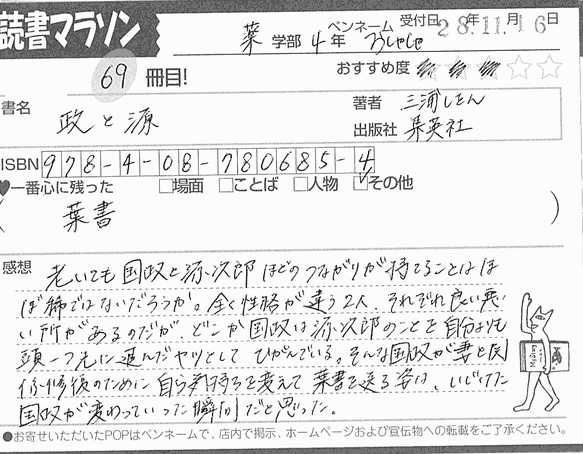 読書マラソン
薬 学部 4 年 ペンネーム おしゃしゃ 受付日 28年11.月16日
69 冊目!
おすすめ度 ★★★☆☆
書名 政と源
著者 三浦しをん
出版社 集英社
ISBN 978-4-08-780685-4
♥一番心に残った □場面 □ことば □人物 ☑その他
( 葉書 )
感想 老いても国政と源次郎ほどのつながりが持てることはほ
ぼ稀ではないだろうか。全く性格が違う2人、それぞれ良い悪
い所があるのだが、どこか国政は源次郎のことを自分よりも
頭一つ先に進んだヤツとしてひがんでいる。そんな国政が妻と関
係修復のために自ら気持ちを変えて葉書を送る姿は、いじけた
国政が変わっていった瞬間だと思った。
●お寄せいただいたPOPはペンネームで、店内で掲示、ホームページおよび宣伝物への転載をご了承ください。